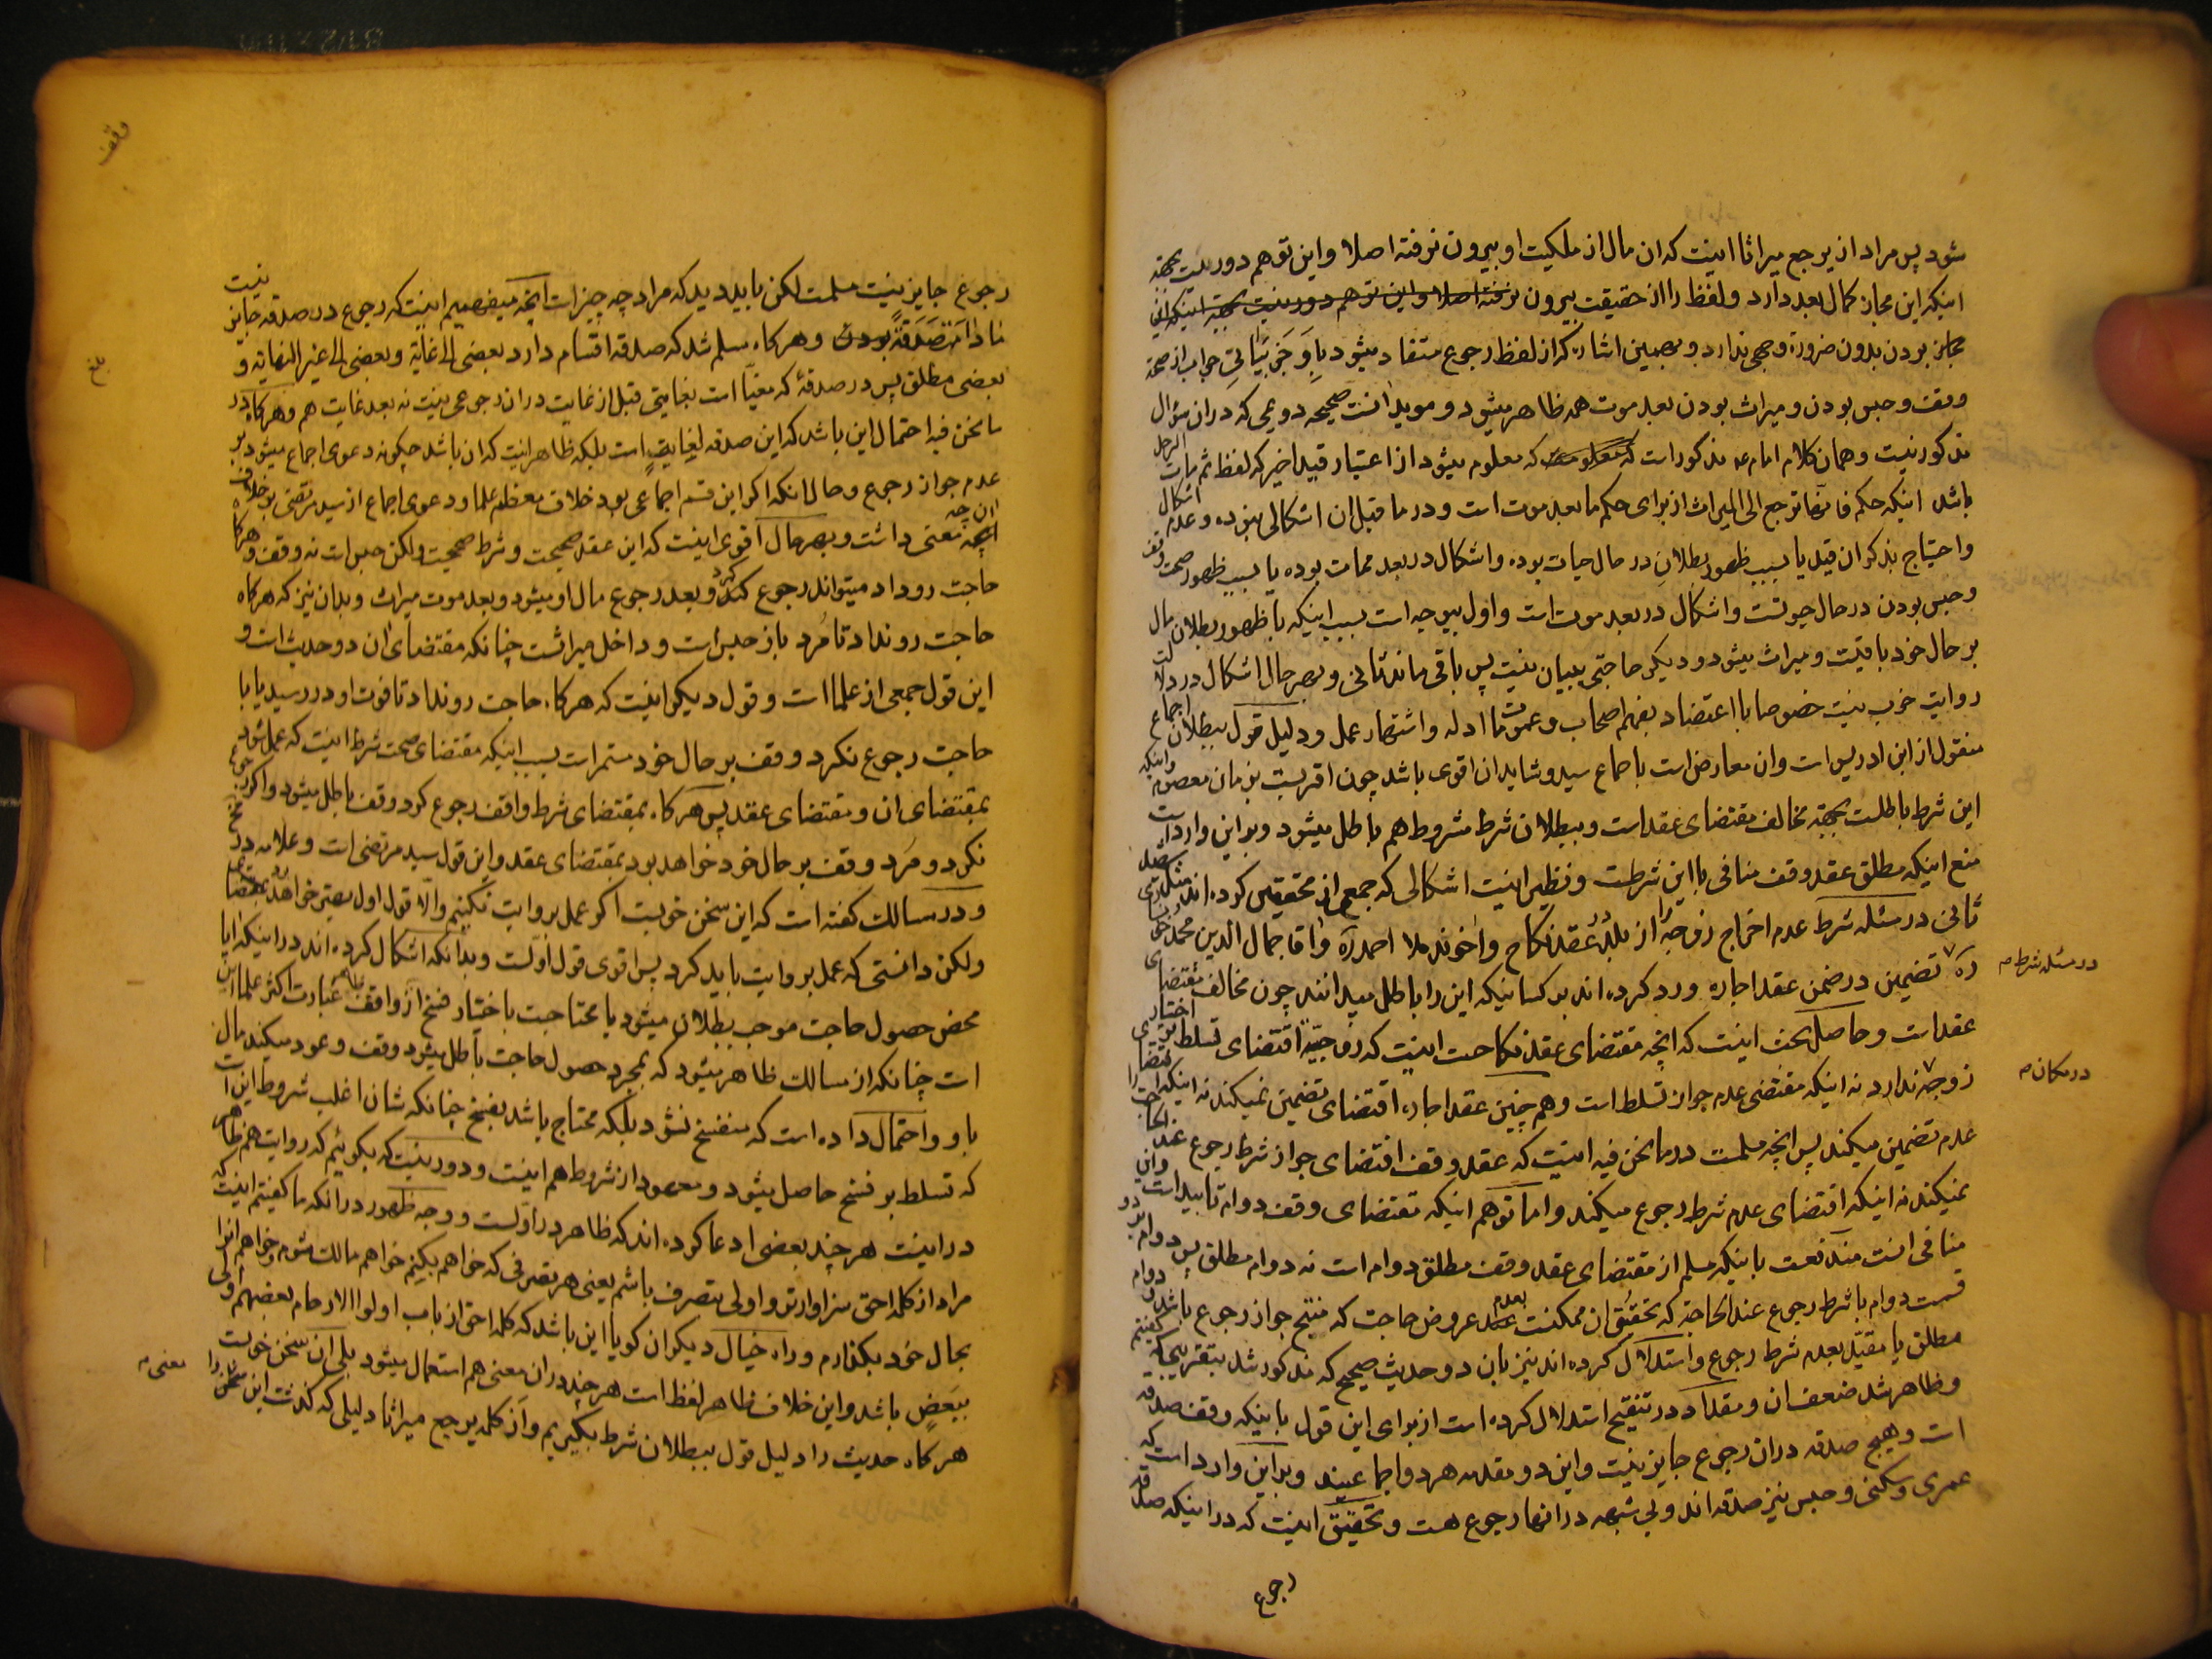 شود پس مراد از یرجع میراثا اینست که ان مال از ملکیت او بیرون نرفته اصلا و این توهم دوریست بجهة
اینکه این مجاز کمال بعد دارد و لفظ را از حقیقت بیرون
مجاز بودن بدون ضرورة وجهی ندارد و بهمین اشاره که از لفظ رجوع مستفاد میشود جواب از صحة
وقف و حبس بودن و میراث بودن بعد موت همه ظاهر میشود و موید انست صحیحه دویمی که در ان سؤال
مذکور نیست و همان کلام امام ع مذکور است که معلوم میشود از اعتبار قید اخیر که لفظ ثم مات الرجل
باشد اینکه حکم فانها ترجع الی المیراث از برای حکم ما بعد موت است و در ما قبل ان اشکالی نبوده و عدم اشکال
و احتیاج بذکر ان قید یا بسبب ظهور بطلان در حال حیات بوده و اشکال در بعد ممات بوده یا بسبب ظهور صحت وقف
و حبس بودن در حال حیوتست و اشکال در بعد موت است و اول بیوجه است بسبب اینکه با ظهور بطلان مال
بر حال خود باقیست و میراث میشود و دیگر حاجتی ببیان نیست پس باقی ماند ثانی و بهر حال اشکال در دلالت
روایت خوب نیست خصوصا با اعتضاد بفهم اصحاب و عمومات ادله و اشتهار عمل و دلیل قول ببطلان اجماع
منقول از ابن ادریس است و ان معارض است با جماع سید و شاید ان اقوی باشد چون اقربست بزمان معصوم و اینکه
این شرط باطلست بجهة مخالف مقتضای عقد است و ببطلان شرط مشروط هم باطل میشود و بر این وارد است
منع اینکه مطلق عقد وقف منافی با این شرطست و نظیر اینست اشکالی که جمعی از محققین کرده اند مثل
ثانی در مسئله شرط عدم اخراج زوجه را از بلد در عقد نکاح و اخوند ملا احمد ره و اقا جمال الدین محمد
ره تضمین در ضمن عقد اجاره و رد کرده اند بر کسانیکه این را باطل میدانند چون مخالف مقتضای
عقد است و حاصل بحث اینست که انچه مقتضای عقد نکاحست اینست که زوجیة اقتضای تسلط
زوجه ندارد نه اینکه مقتضی عدم جواز تسلط است و هم چنین عقد اجاره اقتضای تضمین نمیکند نه اینکه
عدم تضمین میکند پس انچه مسلمست در ما نحن فیه اینست که عقد وقف اقتضای جواز شرط رجوع عند الحاجة را
نمیکند نه اینکه اقتضای عدم شرط رجوع میکند و اما توهم اینکه مقتضای وقف دوام تابید است و این
منافی انست مندفعست باینکه مسلم از مقتضای عقد وقف مطلق دوام است نه دوام مطلق پس دوام
قسمت دوام با شرط رجوع عند الحاجة که تحقق ان ممکنست بعدم عروض حاجت که منتج جواز رجوع باشد و دوام
مطلق یا مقید بعدم شرط رجوع و استدلال کرده اند نیز بان دو حدیث صحیح که مذکور شد بتقریبی که گفتیم
و ظاهر شد ضعف ان و مقداد در تنقیح استدلال کرده است از برای این قول باینکه وقف صدقه
است و هیچ صدقه در ان رجوع جایز نیست و این دو مقدمه هر دو اجماعیند و بر این وارد است که
عمری و سکنی و حبس نیز صدقه اند و بی شبهه در انها رجوع هست و تحقیق اینست که در اینکه صدقه
رجوع
در مسئله شرط م
در مکان م
وقف
بلغ
رجوع جایز نیست مسلمست لکن باید دید که مراد چه چیز است انچه میفهمیم اینست که رجوع در صدقه جایز نیست
مادام صدقة و هر کاه مسلم شد که صدقه اقسام دارد بعضی الی غایة و بعضی الی غیر النهایه و
بعضی مطلق پس در صدقۀ که مغیا است بغایتی قبل از غایت در ان رجوعی نیست نه بعد غایت هم و هر کاه در
ما نحن فیه احتمال این باشد که این صدقه لغایة است بلکه ظاهر اینست که ان باشد چکونه دعوی اجماع میشود بر
عدم جواز رجوع و حال انکه اکر این قسم اجماعی بود خلاف معظم علما و دعوی اجماع از سید مرتضی بر خلاف
ان چه معنی داشت و بهر حال اقوی اینست که این عقد صحیحست و شرط صحیحست و لکن حبس است نه وقف و هر کاه
حاجت رو داد میتواند رجوع کرد و بعد رجوع مال او میشود و بعد موت میراث و بدان نیز که هر کاه
حاجت رو نداد تا مرد باز حبس است و داخل میراثست چنانکه مقتضای ان دو حدیث است و
این قول جمعی از علما است و قول دیکر اینست که هر کاه حاجت رو نداد تا فوت او در رسید یا با
حاجت رجوع نکرد وقف بر حال خود مستمر است بسبب اینکه مقتضای صحت شرط اینست که عمل شود
بمقتضای ان و مقتضای عقد پس هر کاه بمقتضای شرط واقف رجوع کرد وقف باطل میشود و اکر رجوع
نکرد و مرد وقف بر حال خود خواهد بود بمقتضای عقد و این قول سید مرتضی است و علامه در
و در مسالک کفته است که این سخن خوبست اکر عمل بروایت نکنیم و الا قول اول معتبر خواهد
و لکن دانستی که عمل بروایت باید کرد پس اقوی قول اولست و بدانکه اشکال کرده اند در اینکه ایا
محض حصول حاجت موجب بطلان میشود یا محتاجست باختیار فسخ از واقف ظاهر عبارت اکثر علما این
است چنانکه از مسالک ظاهر میشود که بمجرد حصول حاجت باطل میشود وقف و عود میکند مال
باو و احتمال داده است که منفسخ نشود بلکه محتاج باشد بفسخ چنانکه شان اغلب شروط این است
که تسلط بر فسخ حاصل میشود و معهود از شروط هم اینست و دور نیست که بکوئیم که روایت هم ظاهر
در اینست هر چند بعضی ادعا کرده اند که ظاهر در اولست و وجه ظهور در انکه ما کفتیم اینست که
مراد از کلمه احق سزاوارتر و اولی بتصرف باشم یعنی هر تصرفی که خواهم بکنم خواهم مالک شوم و خواهم انرا
بحال خود بکذارم و راه خیال دیکران کویا این باشد که کلمه احق از باب اولوا الارحام بعضهم اولی
ببعض باشد و این خلاف ظاهر لفظ است هر چند در ان معنی هم استعمال میشود بلی ان سخن خوبست
هر کاه حدیث را دلیل قول ببطلان شرط بکیریم و از کلمه یرجع میراثا دلیلی که کذشت این سخن را
معنی م